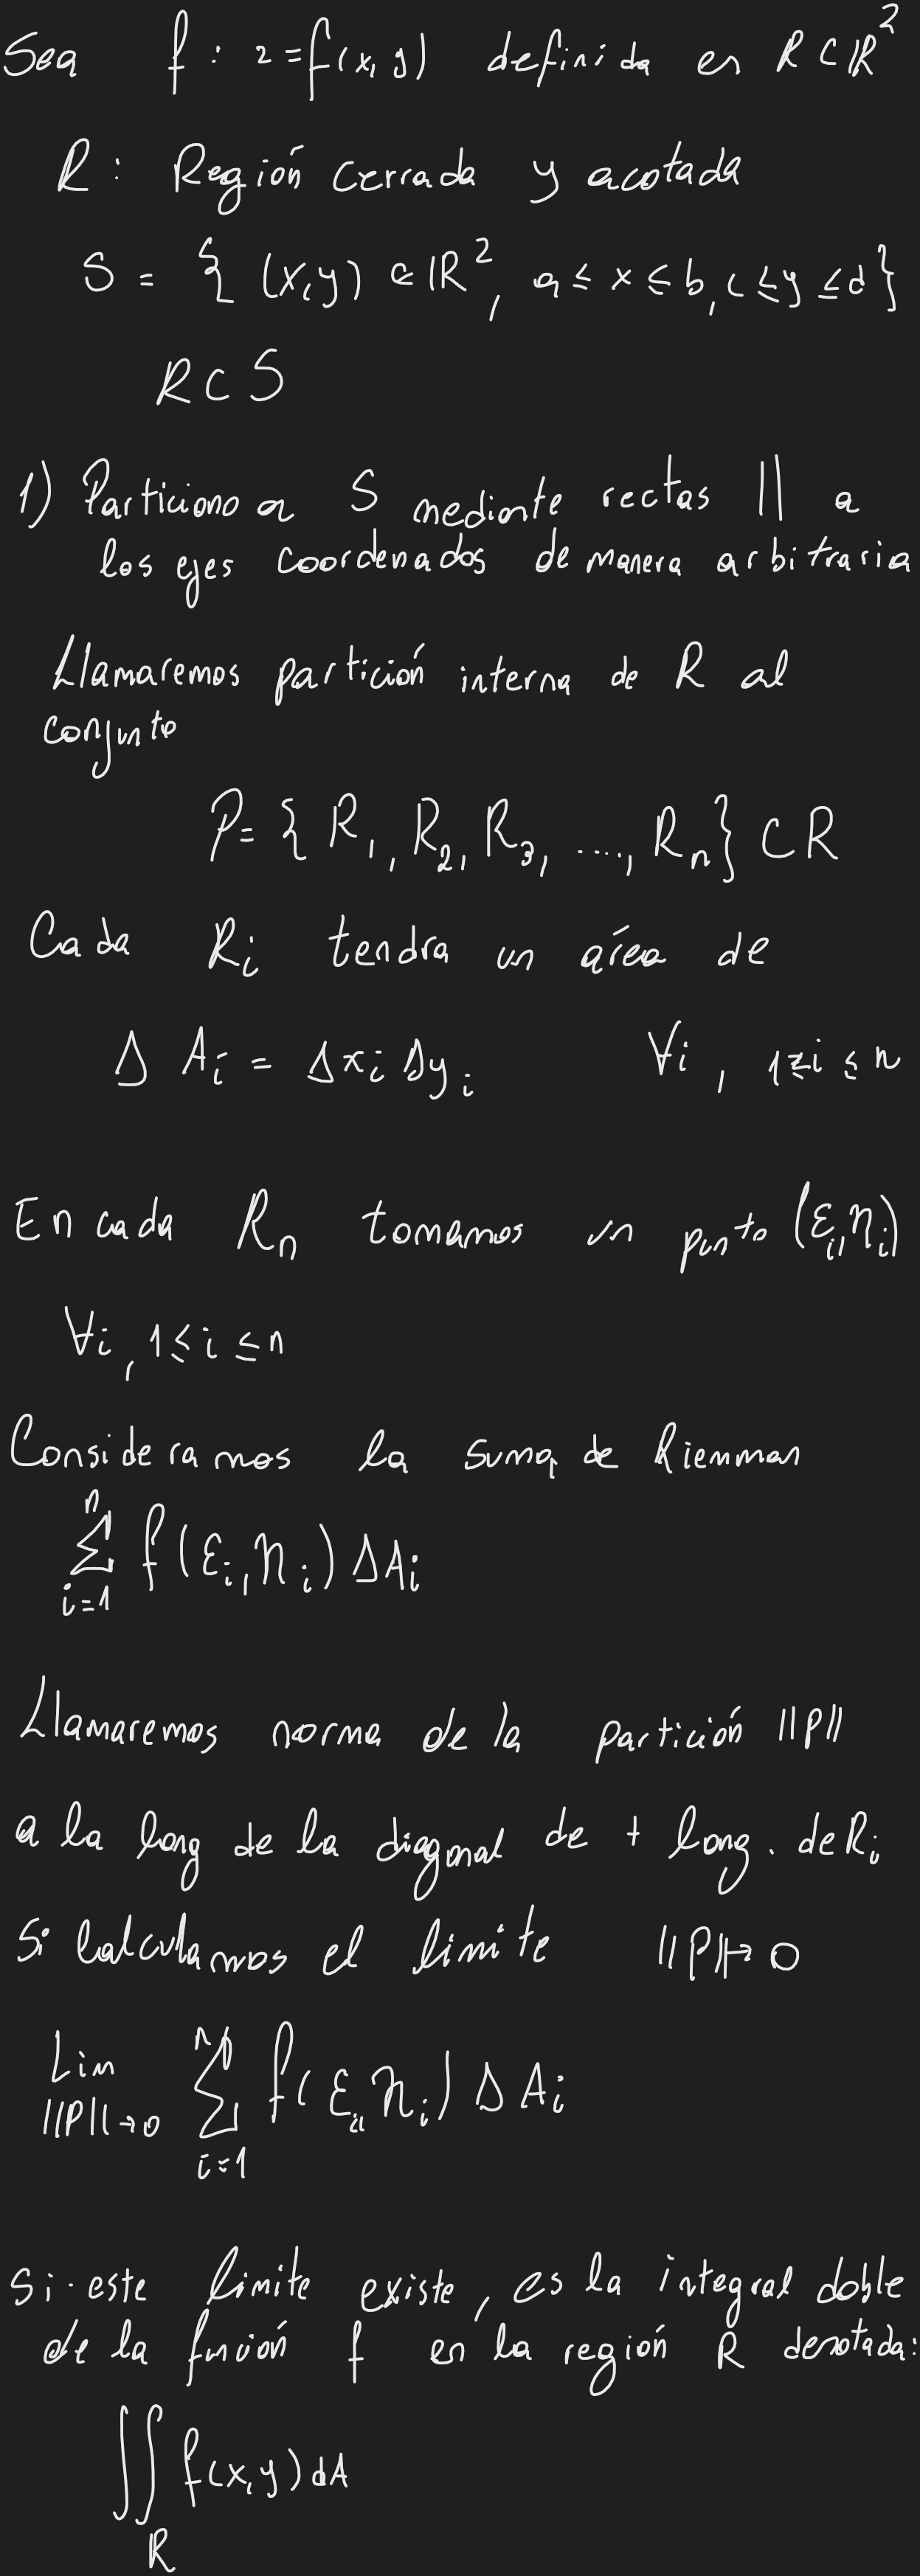 Sea f : z=f(x,y) definida en R⊂ℝ²
R : Región cerrada y acotada
S = { (x,y) ∈ ℝ², a≤x≤b, c≤y≤d}
R⊂S
1) Particiono a S mediante rectas || a
los ejes coordenados de manera arbitraria
Llamaremos partición interna de R al
conjunto
P={ R₁, R₂, R₃, ..., Rₙ} ⊂ R
Cada Rᵢ tendra un área de
Δ Aᵢ = Δxᵢ Δyᵢ ∀i, 1≤i≤n
En cada Rₙ tomamos un punto (εᵢ,ηᵢ)
∀i, 1≤i≤n
Consideramos la suma de Riemman
n
Σ f(εᵢ,ηᵢ) ΔAᵢ
i=1
Llamaremos norma de la partición ||P||
a la long de la diagonal de + long. de Rᵢ
Si calculamos el limite ||P||→0
Lim n
Σ f(εᵢ,ηᵢ) Δ Aᵢ
||P||→0 i=1
Si este limite existe, es la integral doble
de la función f en la región R denotada:
∬ f(x,y) dA
R